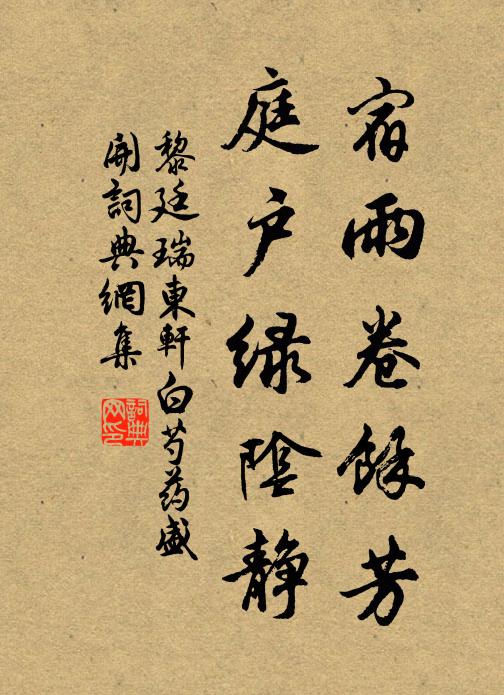 宿雨卷餘芳
庭户緑陰静
黎廷瑞東軒白芍药盛
開詞典網集
詞典
网印